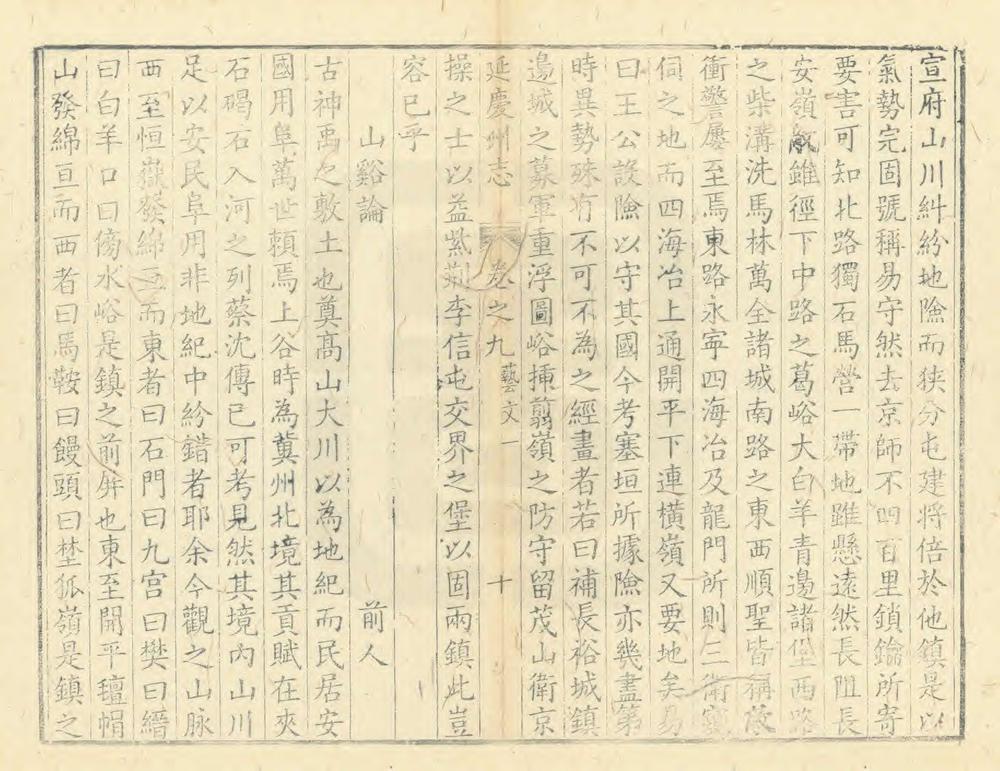 宣府山川糾紛地險而狹分屯建將倍於他鎮是以
氣勢完固號稱易守然去京師不四百里鎖鑰所寄
要害可知北路獨石馬營一帶地雖懸遠然長阻長
安嶺雖徑下中路之葛峪大白羊青邊諸堡西路
之柴溝洗馬林萬全諸城南路之東西順聖皆稱
衝警屢至焉東路永寧四海冶及龍門所則三衛窺
伺之地而四海冶上通開平下連橫嶺又要地矣易
曰王公設險以守其國今考塞垣所據險亦幾盡第
時異勢殊有不可不為之經畫者若曰補長裕城鎮
邊城之募軍重浮圖峪揷箭嶺之防守留茂山衛京
延慶州志 卷之九 藝文一 十
操之士以益紫荊李信屯交界之堡以固兩鎮此豈
容已乎
山谿論 前人
古神禹之敷土也奠高山大川以為地紀而民居安
國用阜萬世賴焉上谷時為冀州北境其貢賦在夾
石碣石入河之列蔡沈傳已可考見然其境內山川
足以安民阜用非地紀中紛錯者耶余今觀之山脉
西至恒嶽發綿亘而東者曰石門曰九宫曰樊曰縉
曰白羊口曰傍水峪是鎮之前屏也東至開平𤩱帽
山發綿亘而西者曰馬鞍曰饅頭曰埜狐嶺是鎮之